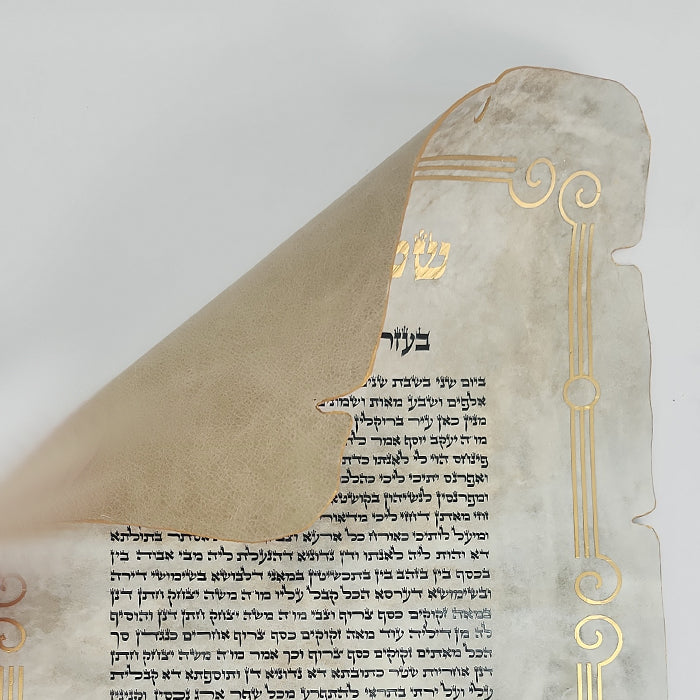 שט
בעזר
ביום שני בשבת שני
אלפים ושבע מאות ושמונים
מנין כאן עיר ברוקלין
מו״ה יעקב יוסף אמר לה
פינחס הוי לי לאנתו כדת
ואפרנס יתיכי ליכי כהלכ
ומפרנסין לנשיהון בקושטא
זוזי מאתן דחזי ליכי מדאור
ומיעל לותיכי כאורח כל ארעא וצב
דא והות ליה לאנתו ודן נדוניא דהנעלת ליה מבי אבוה בין
בכסף בין בזהב בין בתכשיטין במאני דלבושא בשימושי דירה
ובשימושא דערסא הכל קבל עליו מו״ה משה יצחק חתן דנן
במאה זקוקים כסף צרוף וצבי מו״ה משה יצחק חתן דנן והוסיף
לה מן דיליה עוד מאה זקוקים כסף צרוף אחרים כנגדן סך
הכל מאתים זקוקים כסף צרוף וכך אמר מו״ה משה יצחק חתן
דנן אחריות שטר כתובתא דא נדוניא דן ותוספתא דא קבלית
עלי ועל ירתי בתראי להתפרע מכל שפר ארג נכסין וקנינין